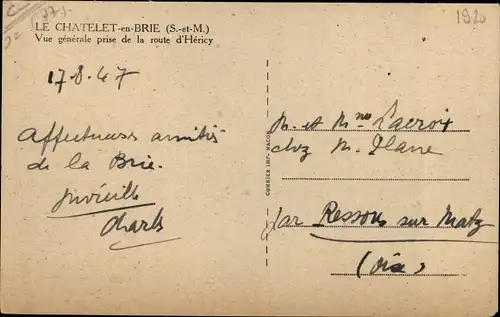 1920
LE CHATELET-en-BRIE (S.-et-M.)
Vue générale prise de la route d'Héricy
17.8.47
Affectueuses amitiés
de la Brie.
Charles
M. et Mme Lacroix
chez M.
par Ressons sur Matz
(Oise)